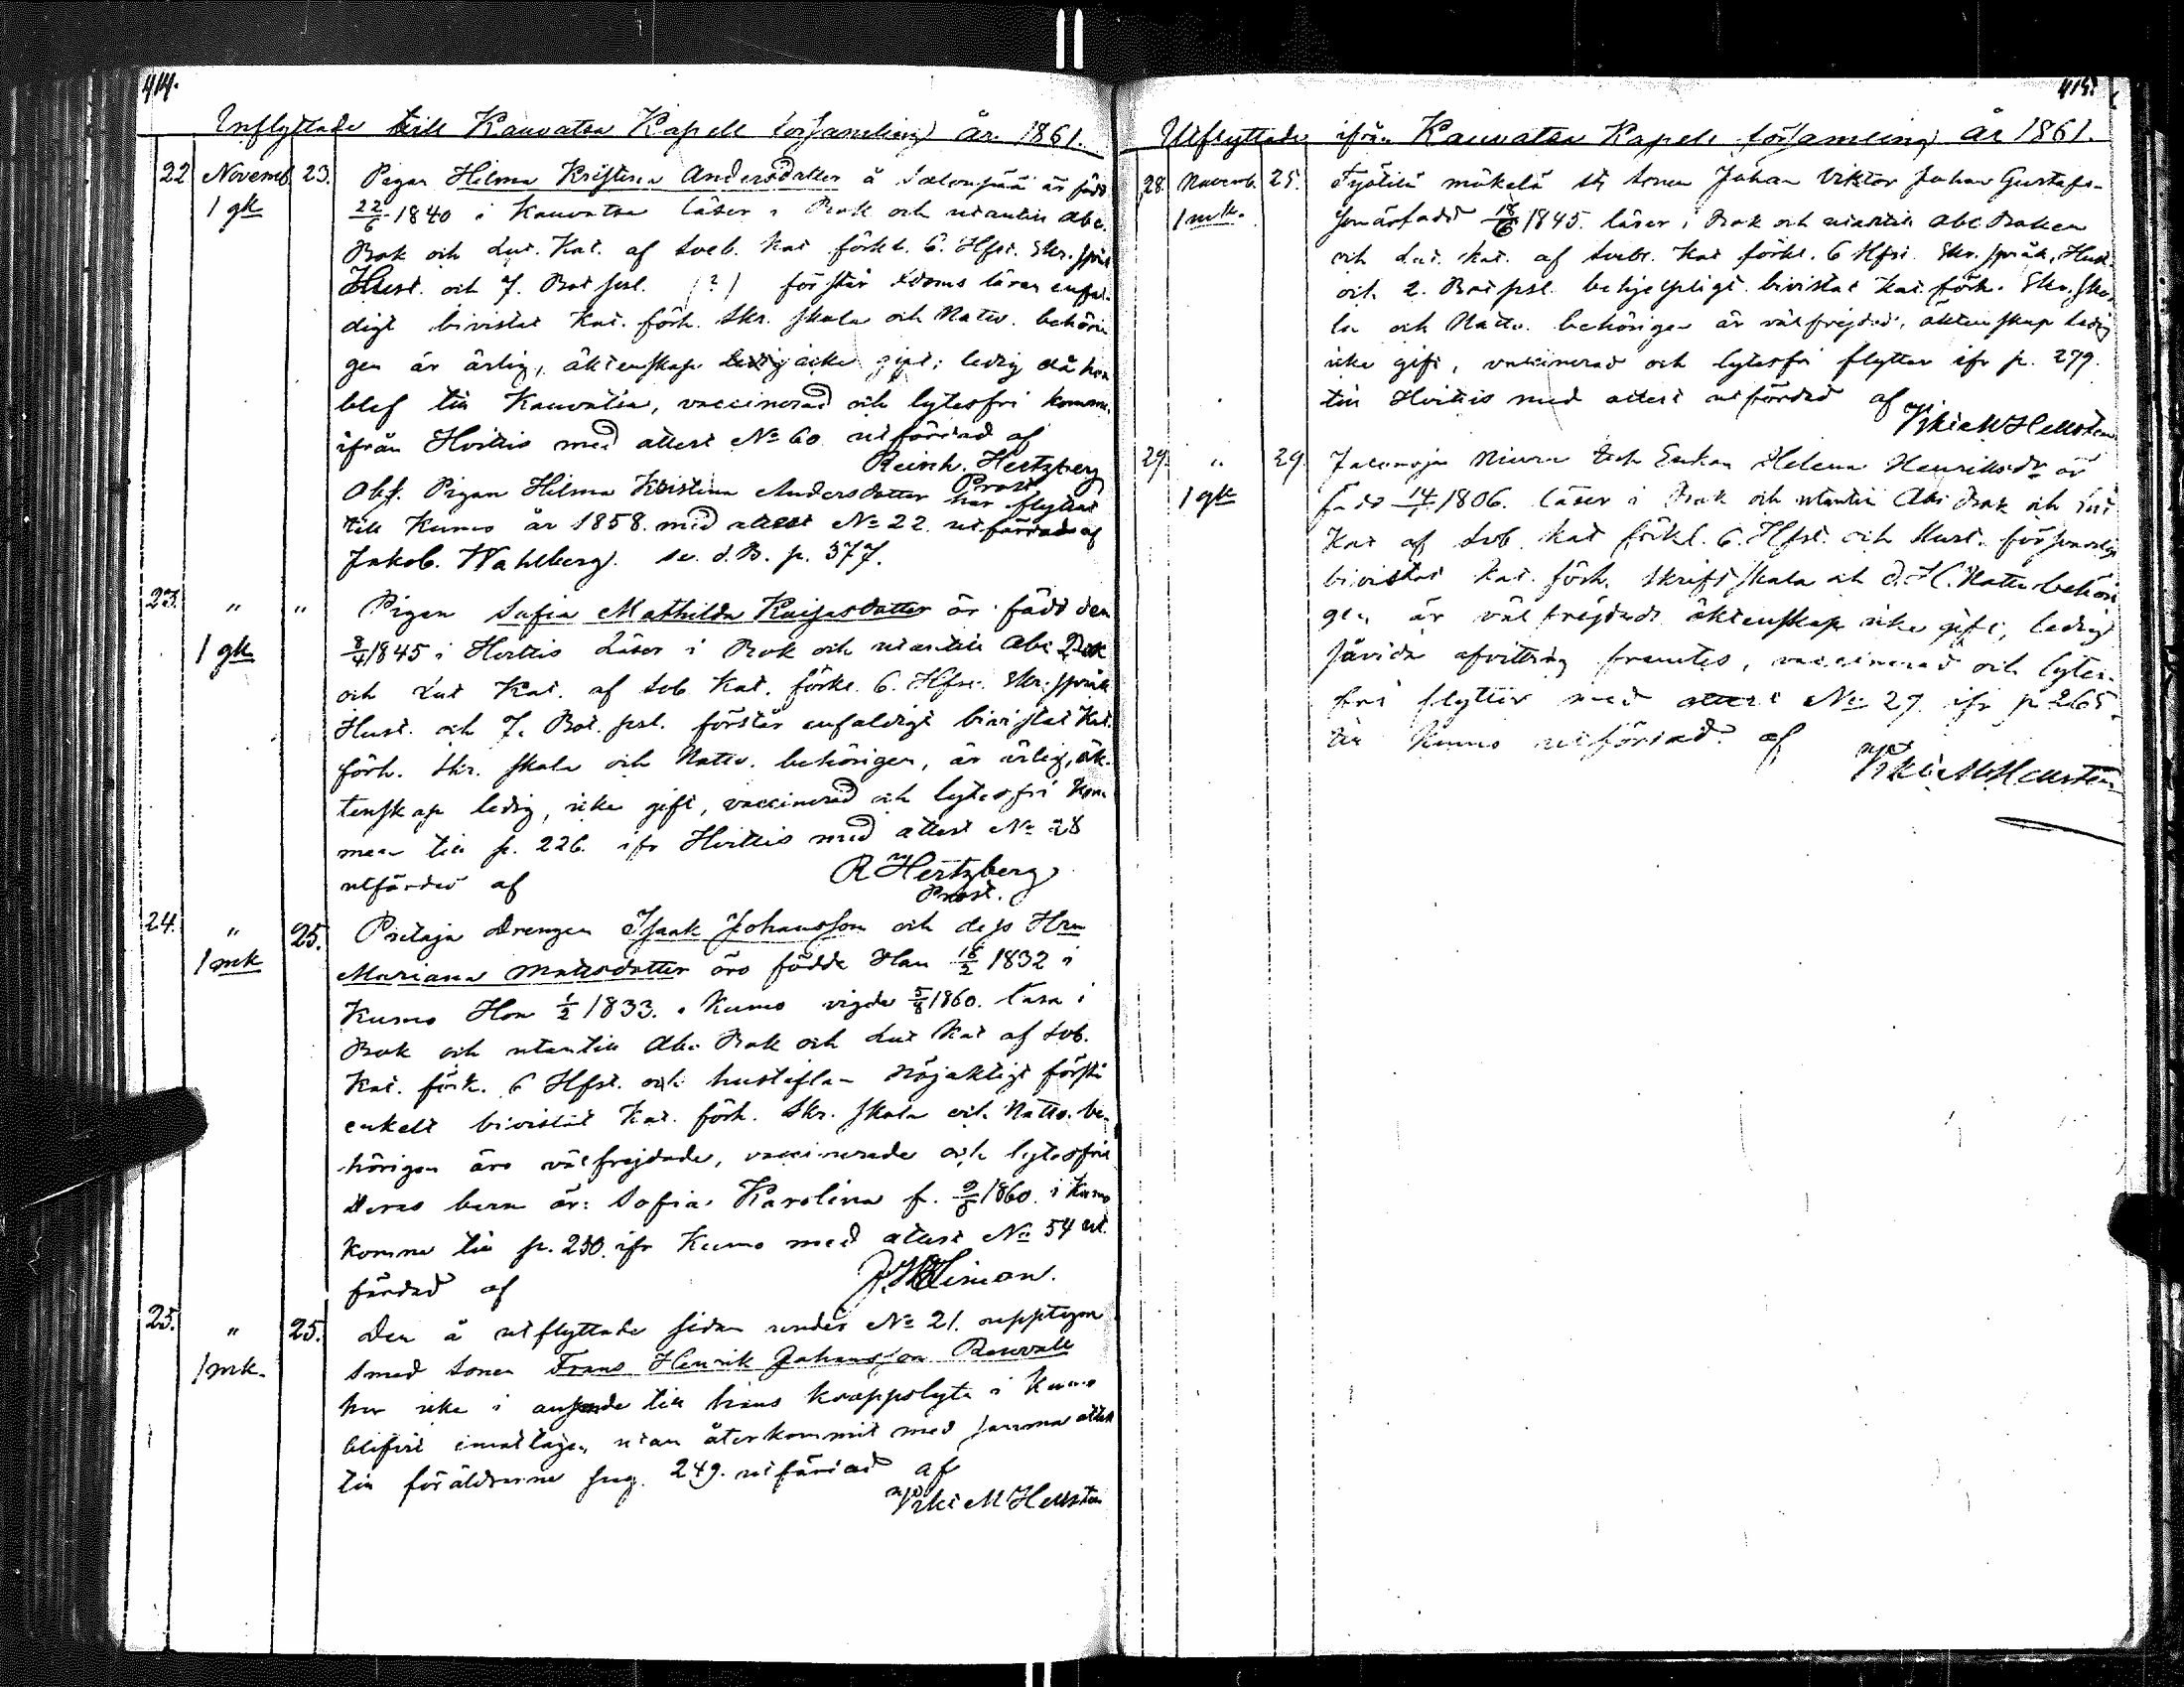 414.
Inflyttade till Kauvatsa Kapell församling år 1861.
22 Novemb. 23. Pigan Hilma Kristina Andersdotter å är född
1 gk 22/6 1840 i Kauvatsa läser i Bok och utantill abc.
Bok och Lut. Kat. af Sveb. Kat förkl. 6. Hfst. Skr. språk
Hust. och 7. Bot psl. (?) förstår lärar enfal-
digt bivistat Kat. förh. Skr. skola och Nattv. behöri-
gen är ärlig, äktenskap icke gift; ledig då hon
blef till Kauvatsa, vaccinerad och lytesfri kommer
ifrån Hvittis med attest No 60. utfärdad af
Reinh. Hertzberg
Prost
Obs. Pigan Hilma Kristina Andersdotter har flyttat
till Kumo år 1858. med attest No 22. utfärdad af
Jakob. Wahlberg. se. d. B. p. 377.
23. " " Pigan Sofia Mathilda Kaisasdotter är född den
1 gk 8/4 1845 i Hvittis Läser i Bok och utantill Abc Bok
och Lut Kat. af Sveb Kat. förkl. 6. Hfst. Skr. språk
Hust. och 7. Bot. psl. förstår enfaldigt bivistat Kat.
förh. Skr. skola och Nattv. behörigen, är ärlig, äk-
tenskap ledig, icke gift, vaccinerad och lytesfri Kom-
mer till p. 226. ifr Hvittis med attest No 28
utfärdad af R Hertzberg
Prost.
24. " 25. Drengen Isaak Johansson och dess Hru
1 mk Mariana Matsdotter äro födde Han 18/2 1832 i
Kumo Hon 1/2 1833. i Kumo vigde 5/8 1860. läsa i
Bok och utantill Abc Bok och Lut Kat af Sveb.
Kat. förk. 6 Hfst. och hustaflan nöjaktigt förstå
enkelt bivistat Kat. förh. Skr. skola och Nattv. be-
hörigen äro välfrejdade, vaccinerade och lytesfria
Deras barn är: Sofia Karolina f. 1860. i Kumo
Komne till p. 230. ifr Kumo med attest No 54 ut-
färdad af
25. " 25. Den å utflyttade sidan under No 21. upptagne
1 mk. smed Sonen Frans Henrik Johansson Renvall
har icke i anseende till hans kroppslyte i Kumo
blifvit emottagen utan återkommit med samma attest
till föräldrarne pag. 249. utfärdad af
Hellsten
415.
Utflyttade ifrån Kauvatsa Kapell församling år 1861.
28. Novemb. 25. mäkelä Sonen Johan Viktor Johan Gustafs-
1 mk. son är född 18/6 1845. läser i Bok och utantill abc Boken
och Lut. Kat. af Sveb. Kat förkl. 6 Hfst. Skr. språk, Hust.
och 2. Bot psl. behjelpligt. bivistat Kat. förh. Skr. sko-
la och Nattv. behörigen är välfrejdad, äktenskap ledig
icke gift, vaccinerad och lytesfri flyttar ifr p. 279.
till Hvittis med attest utfärdad af
Hellsten
29. " 29. Enkan Helena Henriksdr är
1 gk född 14/1 1806. läser i Bok och utantill Abc Bok och Lut
Kat af Sveb. Kat förkl. 6. Hfst. och Hust. försvarligt
bivistat Kat. förh. skriftskola och d. H. Nattv. behöri-
gen är välfrejdad äktenskap icke gift, ledig
såvida afvittring framtes, vaccinerad och lytes-
fri flyttar med attest No 27 ifr p 265.
till Kumo utfärdad af
Hellsten